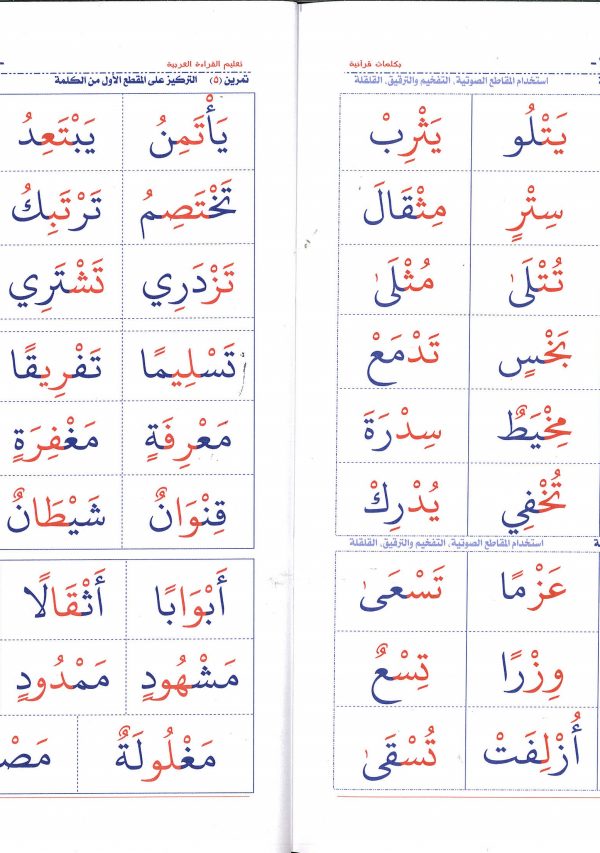 بكلمات قرآنية
استخدام المقاطع الصوتية، التفخيم والترقيق، القلقلة
يَتْلُو يَثْرِبْ
سِتْرٍ مِثْقَالَ
تُتْلَىٰ مُثْلَىٰ
بَخْسٍ تَدْمَعْ
مِخْيَطٌ سِدْرَةَ
تُخْفِي يُدْرِكْ
استخدام المقاطع الصوتية، التفخيم والترقيق، القلقلة
عَزْمًا تَسْعَىٰ
وِزْرًا تِسْعٌ
أُزْلِفَتْ تُسْقَىٰ
تعليم القراءة العربية
تمرين (٥) التركيز على المقطع الأول من الكلمة
يَأْتَمِنُ يَبْتَعِدُ
تَخْتَصِمُ تَرْتَبِكُ
تَزْدَرِي تَشْتَرِي
تَسْلِيمًا تَفْرِيقًا
مَعْرِفَةٍ مَغْفِرَةٍ
قِنْوَانٌ شَيْطَانٌ
أَبْوَابًا أَثْقَالًا
مَشْهُودٍ مَمْدُودٍ
مَغْلُولَةٌ